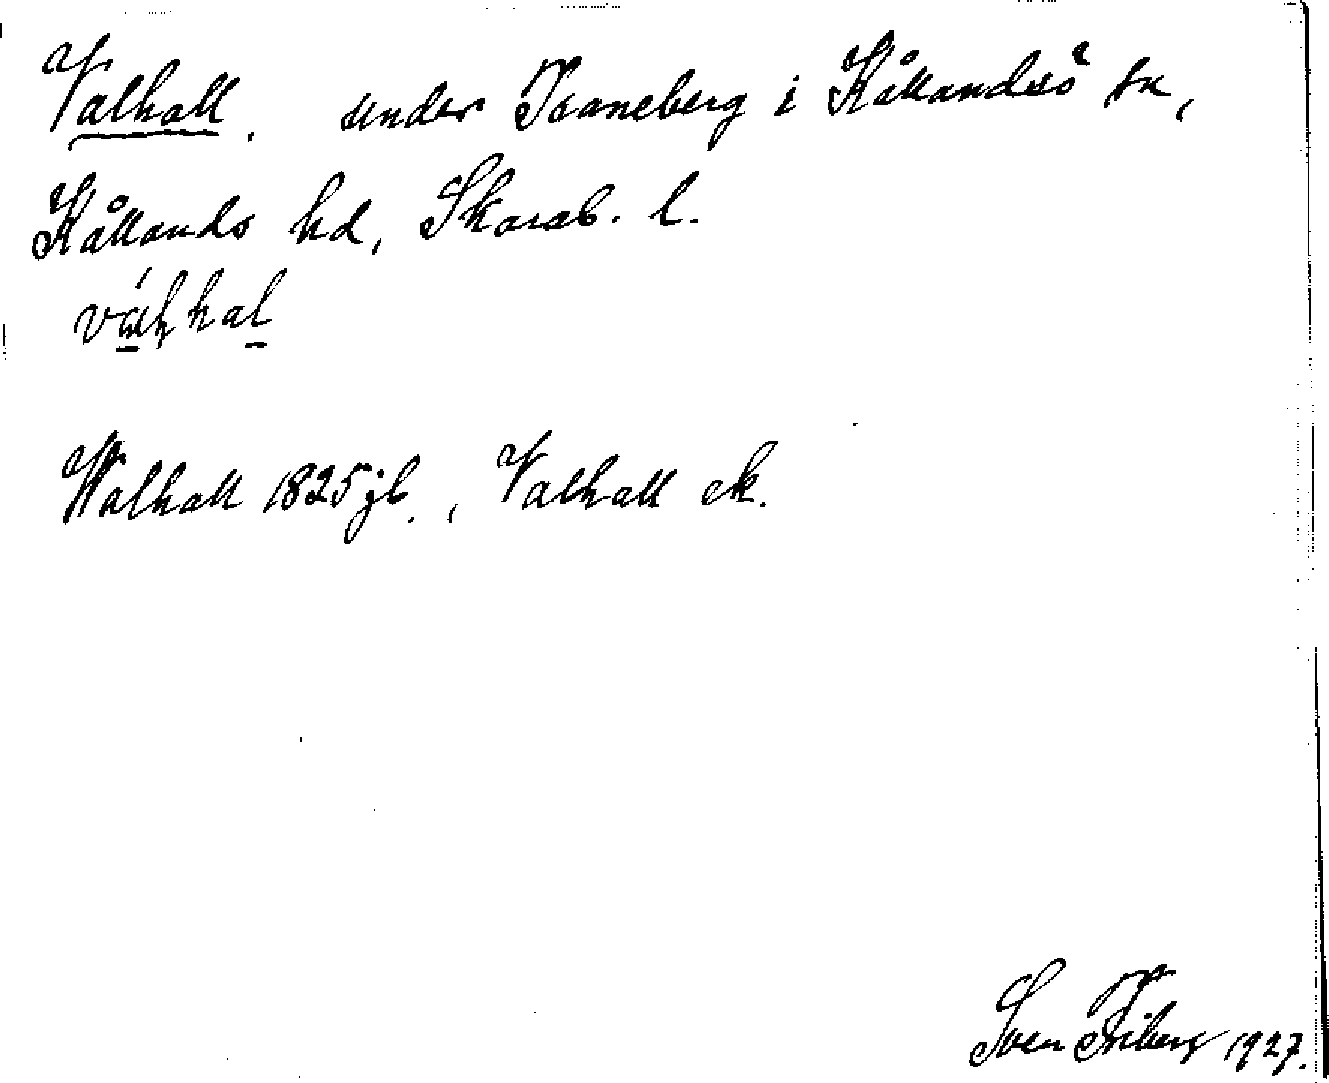 Valhall. under Traneberg i Kållandsö sn,
Kållands hd, Skarab. l.
Walhall 1825 jb., Valhall ek.
Sven Friberg 1927.